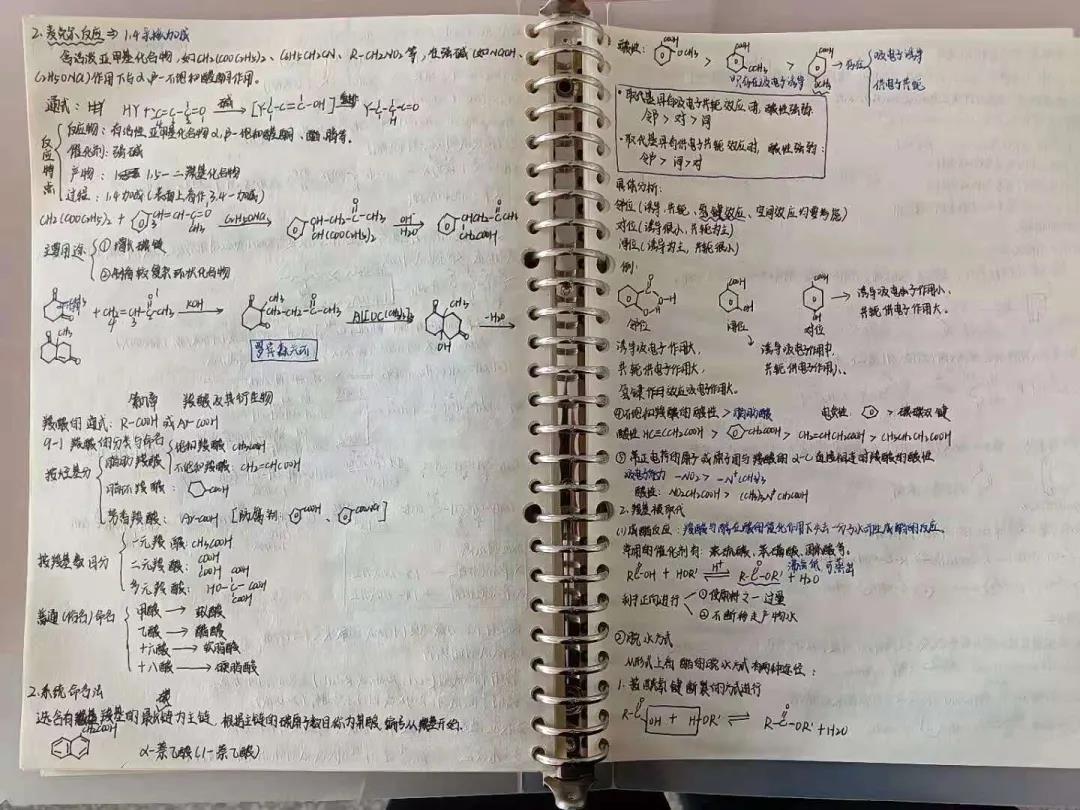 2. 麦克尔反应 ⇒ 1.4亲核加成
含活泼亚甲基化合物,如CH₂(COOC₂H₅)₂、C₆H₅CH₂CN、R-CH₂NO₂等,在强碱(如NaOH、
C₂H₅ONa)作用下与α,β-不饱和醛酮作用。
通式: HY + -C=C-C=O 碱→ [Y-C-C=C-OH] Y-C-C-C=O
H
反应特点
反应物:有活性亚甲基化合物 α,β-饱和醛酮、酯、腈等。
催化剂:强碱
产物: 1,5-二羰基化合物
过程: 1.4加成(表面上看作3.4-加成)
CH₂(COOC₂H₅)₂ + CH=CH-C=O CH₃ C₂H₅ONa→ CH-CH₂-C-CH₃ CH(COOC₂H₅)₂ OH⁻ H₂O→ CHCH₂-C-CH₃ CH₂COOH
主要用途 ①增长碳链
②制备较复杂环状化合物
CH₃ + CH₂=CH-C-CH₃ KOH→ CH₃ CH₂-CH₂-C-CH₃ Al[OC(CH₃)₃]₃ CH₃ OH -H₂O→
4 3
CH₃
羧酸及其衍生物
羧酸的通式: R-COOH 或 Ar-COOH
9-1 羧酸的分类与命名
按烃基分
脂肪羧酸 饱和羧酸 CH₃COOH
不饱和羧酸: CH₂=CHCOOH
脂环羧酸: -COOH
芳香羧酸: Ar-COOH [防腐剂: COOH、COONa]
按羧基数目分
一元羧酸: CH₃COOH
二元羧酸: COOH COOH
多元羧酸: HO-C-COOH COOH COOH
普通(俗名)命名
甲酸 → 蚁酸
乙酸 → 醋酸
十六酸 → 软脂酸
十八酸 → 硬脂酸
2.系统命名法
选含有羧基的最长碳链为主链,根据主链的碳原子数目称为某酸,编号从羧基开始.
CH₂COOH
α-萘乙酸(1-萘乙酸)
酸性: COOH OCH₃ > COOH OCH₃ > COOH OCH₃ → 存在 吸电子诱导
只存在吸电子诱导 供电子共轭
·取代基具有吸电子共轭效应时,酸性强弱:
邻 > 对 > 间
·取代基具有供电子共轭效应时,酸性强弱:
邻 > 间 > 对
具体分析:
邻位(诱导、共轭、氢键效应、空间效应均要考虑)
对位(诱导很小,共轭为主)
间位(诱导为主,共轭很小)
例:
COOH OH COOH OH → 诱导吸电子作用小、
共轭供电子作用大。
邻位 间位 对位
诱导吸电子作用大, 诱导吸电子作用中,
共轭供电子作用大, 共轭供电子作用小、
氢键作用效应吸电子作用大。
④不饱和羧酸的酸性 > 脂肪酸 电负性: > 碳碳双键
酸性 HC≡CCH₂COOH > CH₂COOH > CH₂=CHCH₂COOH > CH₃CH₂CH₂COOH
⑤ 带正电荷的原子或原子团与羧酸的α-C直接相连时羧酸的酸性
吸电子能力 -NO₂ > -N⁺(CH₃)₃
酸性: NO₂CH₂COOH > (CH₃)₃N⁺CH₂COOH
2. 羟基被取代
(1)成酯反应: 羧酸与醇在酸的催化作用下失去一分子水而生成酯的反应.
常用的催化剂有: 浓硫酸、苯磺酸、
沸点低 可蒸出
R-C-OH + HOR' ⇌ H⁺ R-C-OR' + H₂O
利于正向进行 ①使原料之一过量
②不断移走产物水
②脱水方式
从形式上看 酯的脱水方式有两种途径:
1. 按酰氧键断裂的方式进行
R-C-OH + H-OR' ⇌ R-C-OR' + H₂O